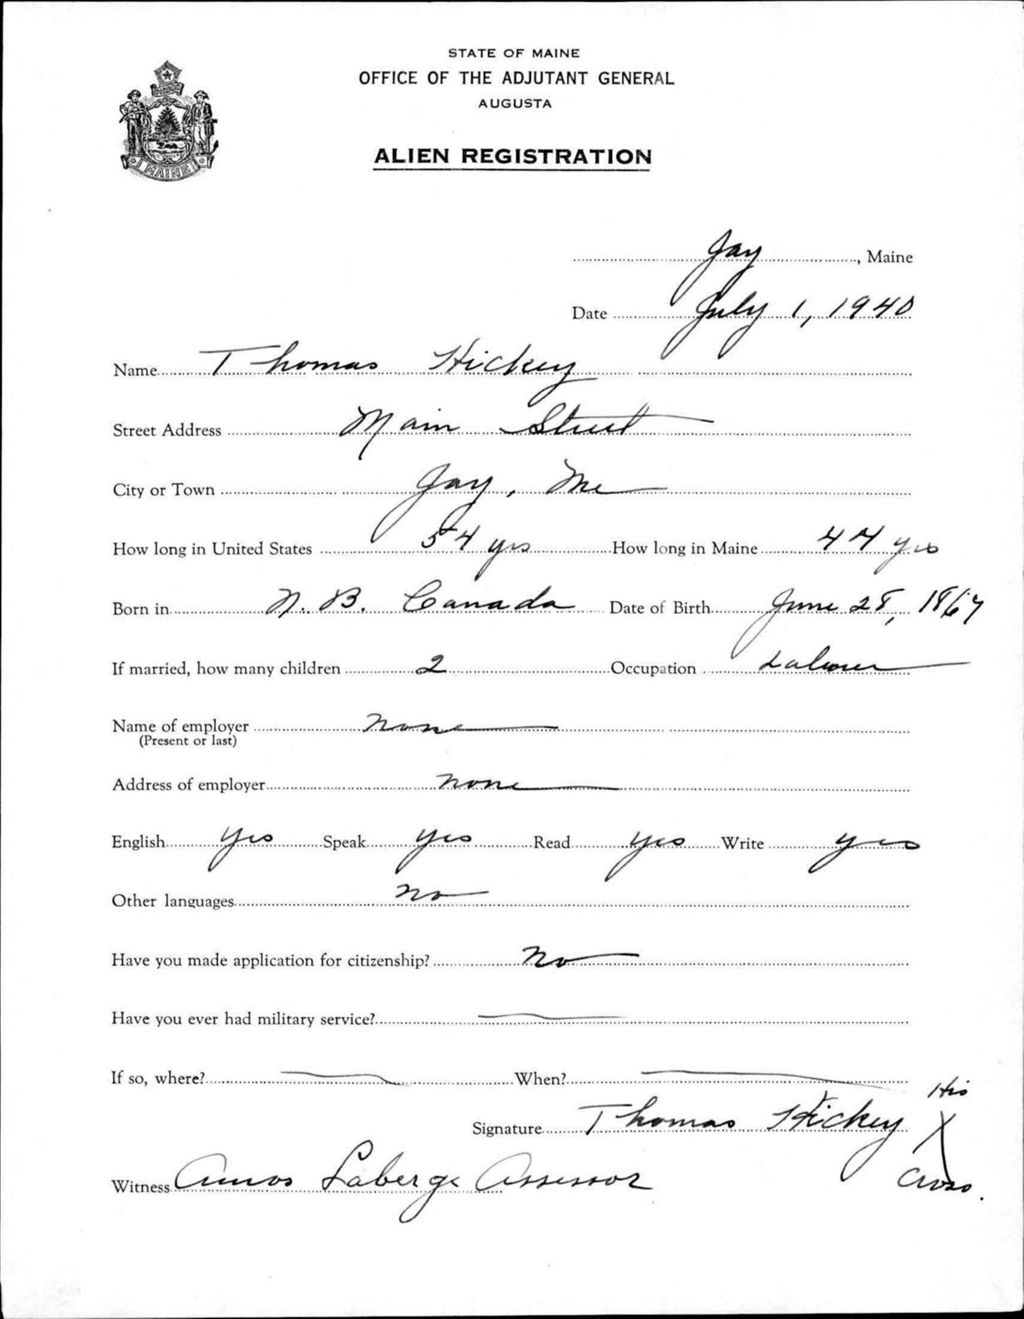 STATE OF MAINE
OFFICE OF THE ADJUTANT GENERAL
AUGUSTA
ALIEN REGISTRATION
MAINE
Jay, Maine
Date July 1, 1940
Name Thomas Hickey
Street Address Main Street
City or Town Jay, Me
How long in United States 54 yrs How long in Maine 44 yrs
Born in N. B. Canada Date of Birth June 28, 1867
If married, how many children 2 Occupation Laborer
Name of employer none
(Present or last)
Address of employer none
English yes Speak yes Read yes Write yes
Other languages no
Have you made application for citizenship? No
Have you ever had military service?
If so, where? When?
His
Signature Thomas Hickey X
Witness Amos Laberge Assessor Cross.